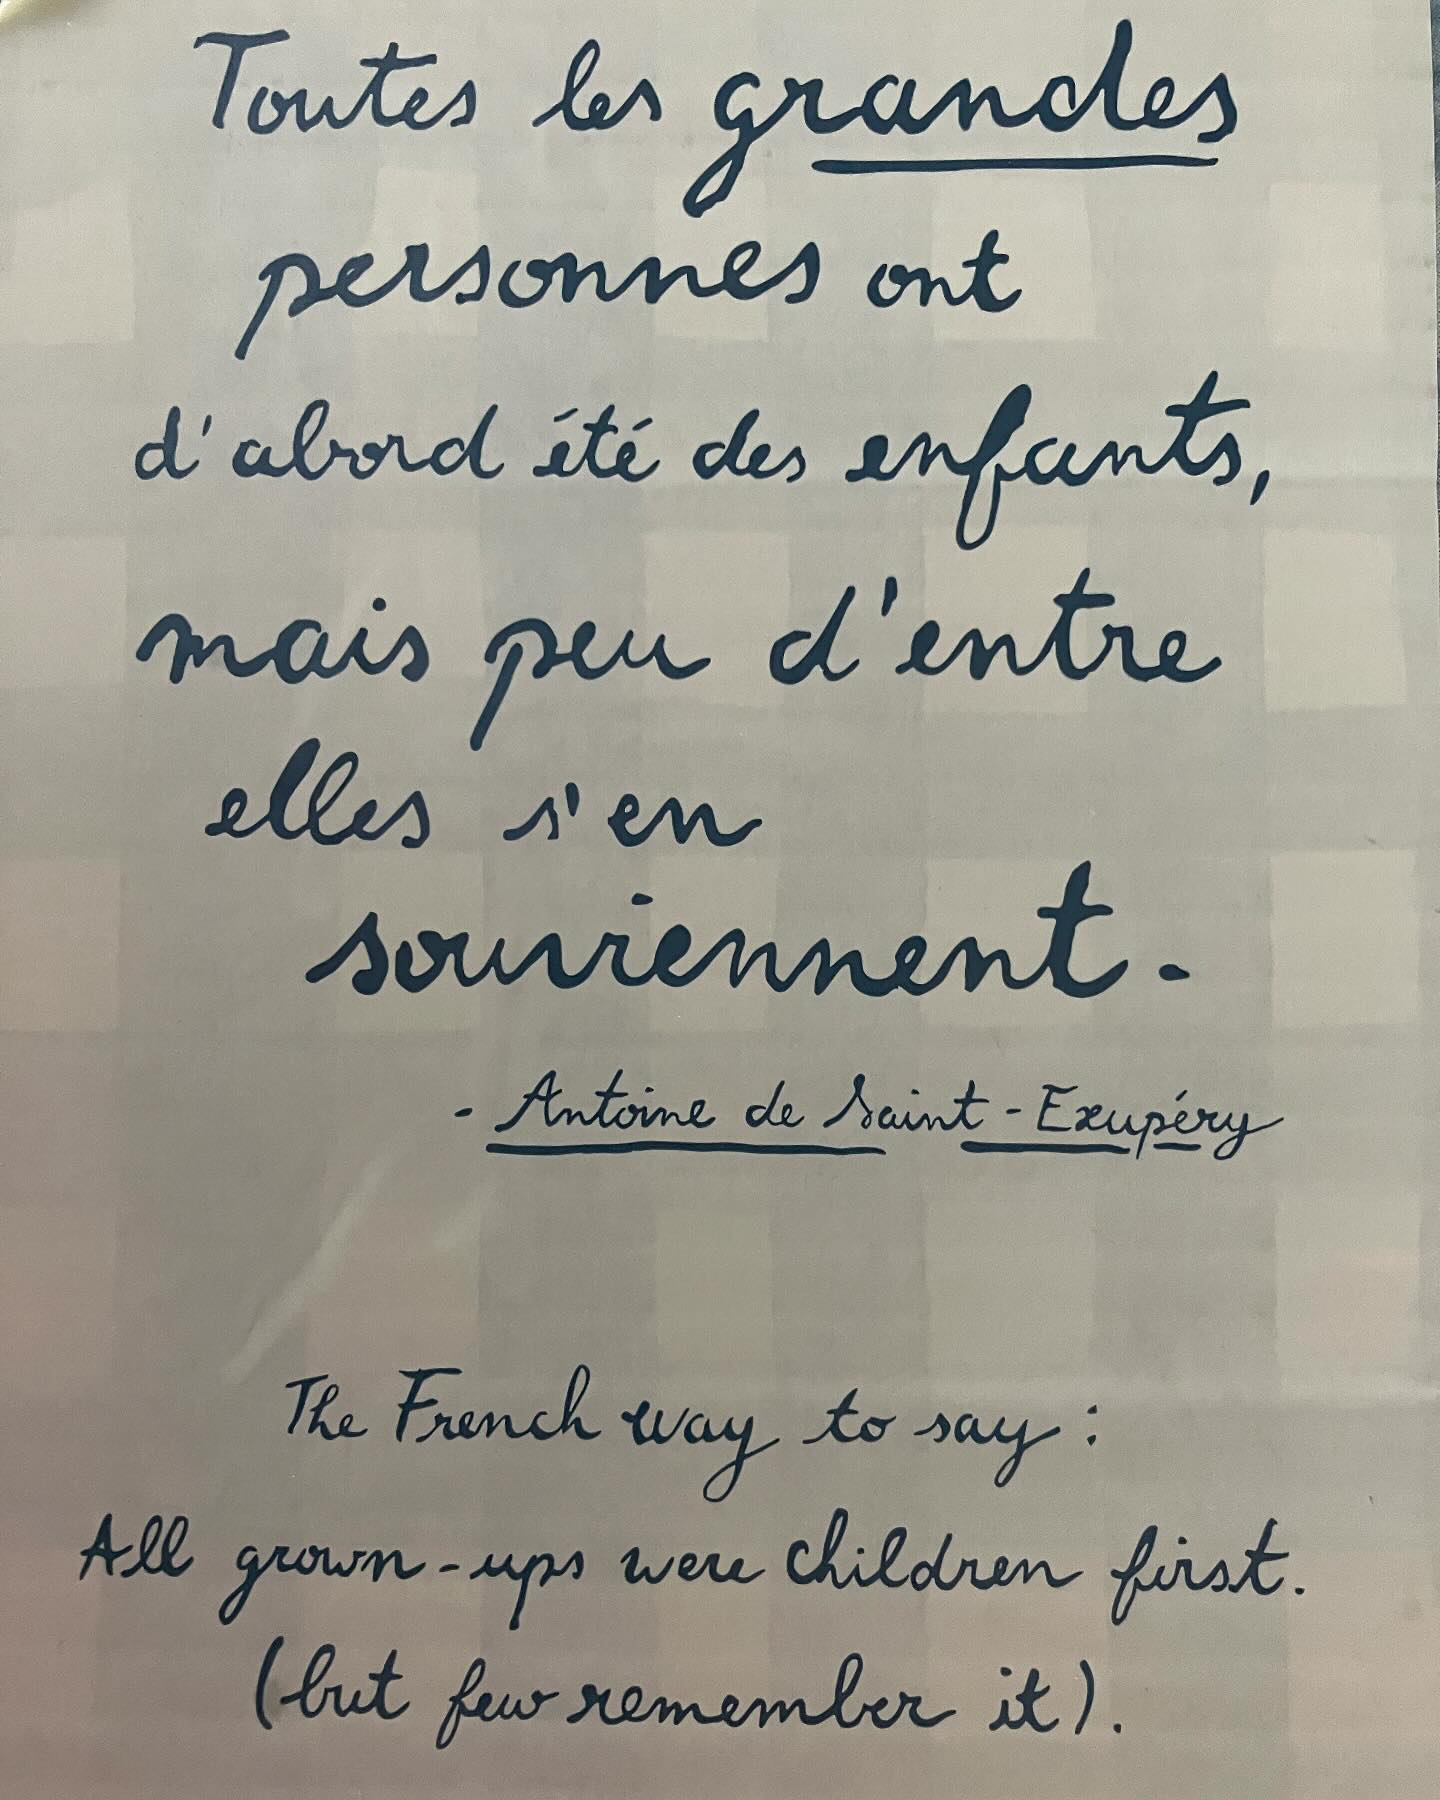 Toutes les grandes
personnes ont
d'abord été des enfants,
mais peu d'entre
elles s'en
souviennent.
- Antoine de Saint-Exupéry
The French way to say :
All grown-ups were children first.
(but few remember it).